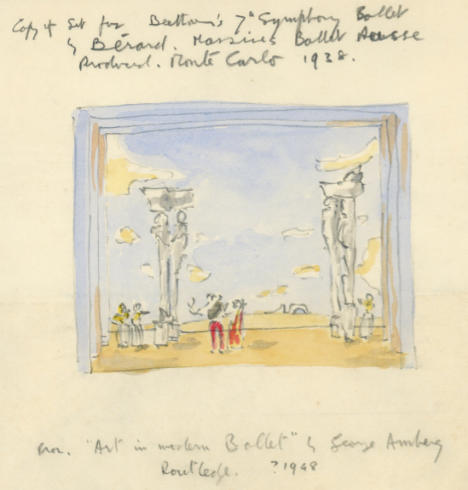 Copy of Set for Beethoven's 7th Symphony Ballet
by Bérard. Massine's Ballet Russe
Produced. Monte Carlo 1938.
"Art in modern Ballet" by George Amberg
Routledge. ? 1948